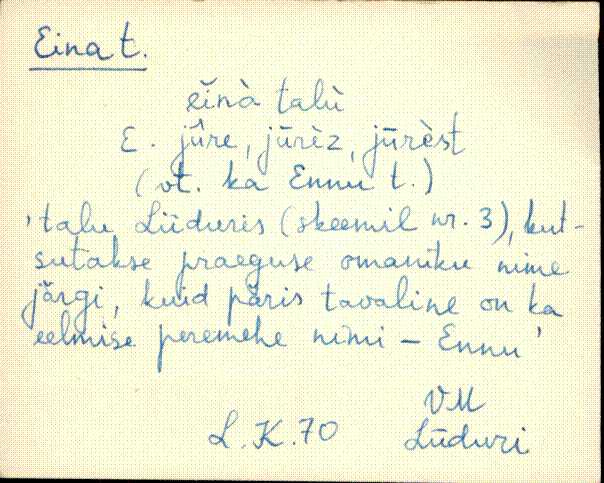 Eina t.
eìnà talù
E. jûre, jūrèz, jūrèst
(vt. ka Ennu t.)
'talu Lüduris (skeemil nr. 3), kut-
sutakse praeguse omaniku nime
järgi, kuid päris tavaline on ka
eelmise peremehe nimi – Ennu'
VM
L.K.70 Lüduri